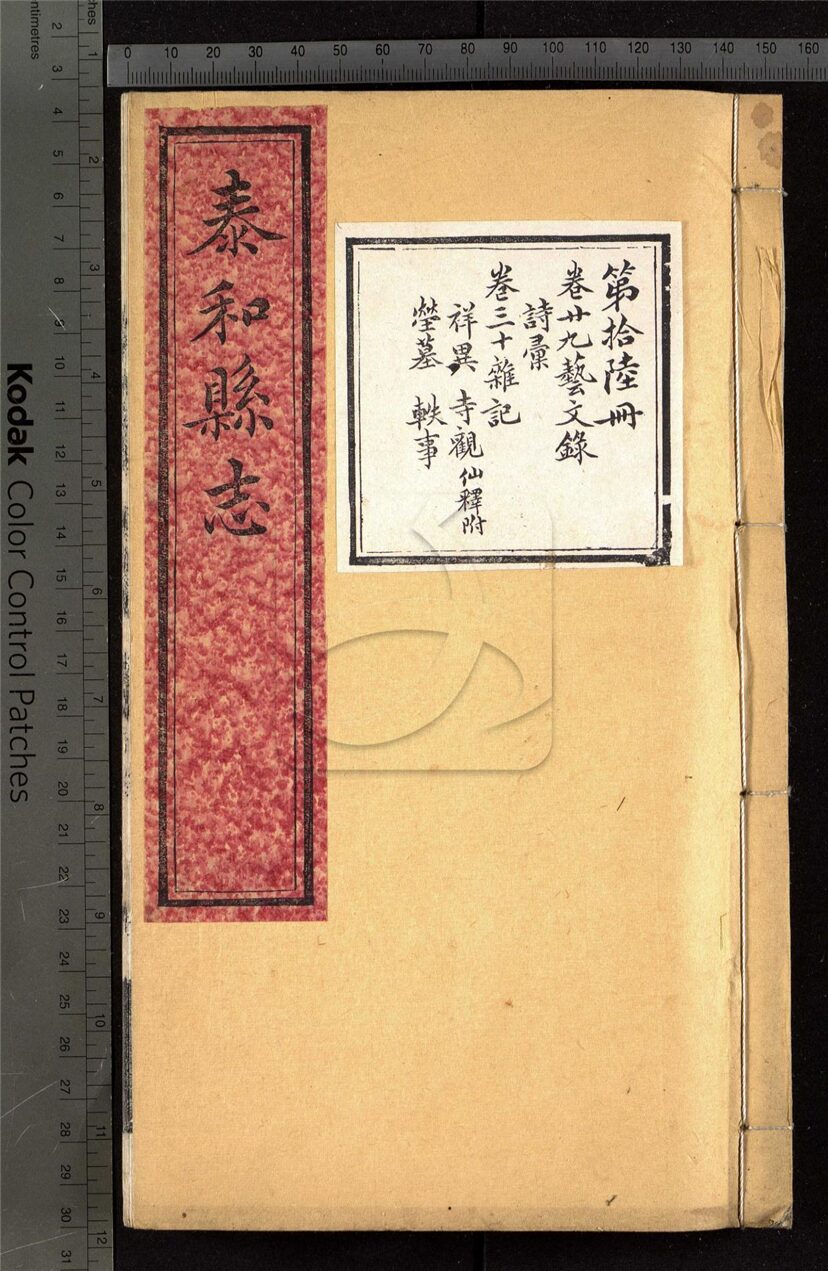 泰和縣志
第拾陸冊
卷廿九藝文錄
詩彙
卷三十雜記
祥異 寺觀 仙釋附
塋墓 軼事
Kodak Color Control Patches
0 10 20 30 40 50 60 70 80 90 100 110 120 130 140 150 160
2 3 4 5 6 7 8 9 10 11 12 13 14 15 16 17 18 19 20 21 22 23 24 25 26 27 28 29 30 31
1 2 3 4 5 6 7 8 9 10 11 12